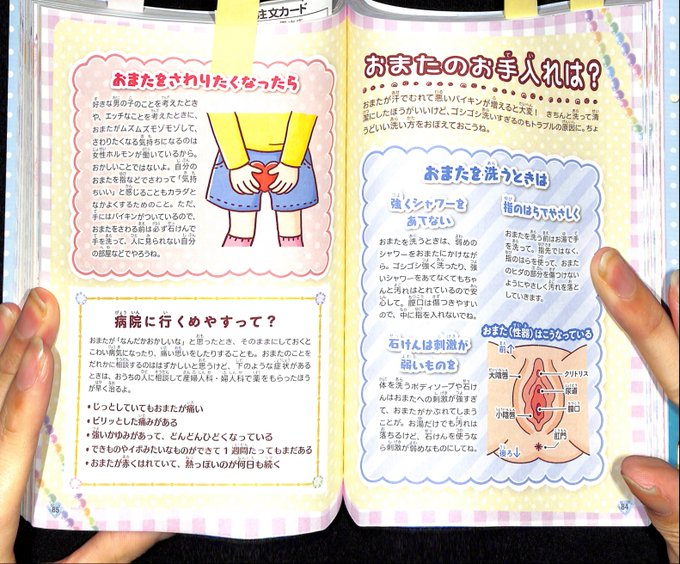 おまたのお手入れは?
おまたが汗でむれて悪いバイキンが増えると大変! きちんと洗って清
潔にしたほうがいいけど、ゴシゴシ洗いすぎるのもトラブルの原因に。ちょ
うどいい洗い方をおぼえておこうね。
おまたを洗うときは
強くシャワーを
あてない
おまたを洗うときは、弱めの
シャワーをおまたにかけなが
ら。ゴシゴシ強く洗ったり、強
いシャワーをあてなくてもちゃ
んと汚れはとれているので安
心して。膣口は傷つきやすい
ので、中に指を入れないでね。
指のはらでやさしく
おまたを洗う前はお湯で手
を洗って、指先ではなく、
指のはらを使って、おまた
のヒダの部分を傷つけない
ようにやさしく汚れを落と
していきます。
石けんは刺激が
弱いものを
体を洗うボディソープや石け
んはおまたへの刺激が強すぎ
て、おまたがかぶれてしまう
ことが。お湯だけでも汚れは
落ちるけど、石けんを使うな
ら刺激が弱めなものにしてね。
おまた(性器)はこうなっている
前↑
大陰唇
クリトリス
尿道
小陰唇
膣口
肛門
後ろ↓
84
注文カード
おまたをさわりたくなったら
好きな男の子のことを考えたとき
や、エッチなことを考えたときに、
おまたがムズムズモゾモゾして、
さわりたくなる気持ちになるのは
女性ホルモンが働いているから。
おかしいことではないよ。自分の
おまたを指などでさわって「気持
ちいい」と感じることもカラダと
なかよくするためのこと。ただ、
手にはバイキンがついているので、
おまたをさわる前は必ず石けんで
手を洗って、人に見られない自分
の部屋などでやろうね。
病院に行くめやすって?
おまたが「なんだかおかしいな」と思ったとき、そのままにしておくと
こわい病気になったり、痛い思いをしたりすることも。おまたのことを
だれかに相談するのははずかしいと思うけど、下のような症状がある
ときは、おうちの人に相談して産婦人科・婦人科で薬をもらったほう
が早く治るよ。
・じっとしていてもおまたが痛い
・ピリッとした痛みがある
・強いかゆみがあって、どんどんひどくなっている
・できものやイボみたいなものができて1週間たってもまだある
・おまたが赤くはれていて、熱っぽいのが何日も続く
85